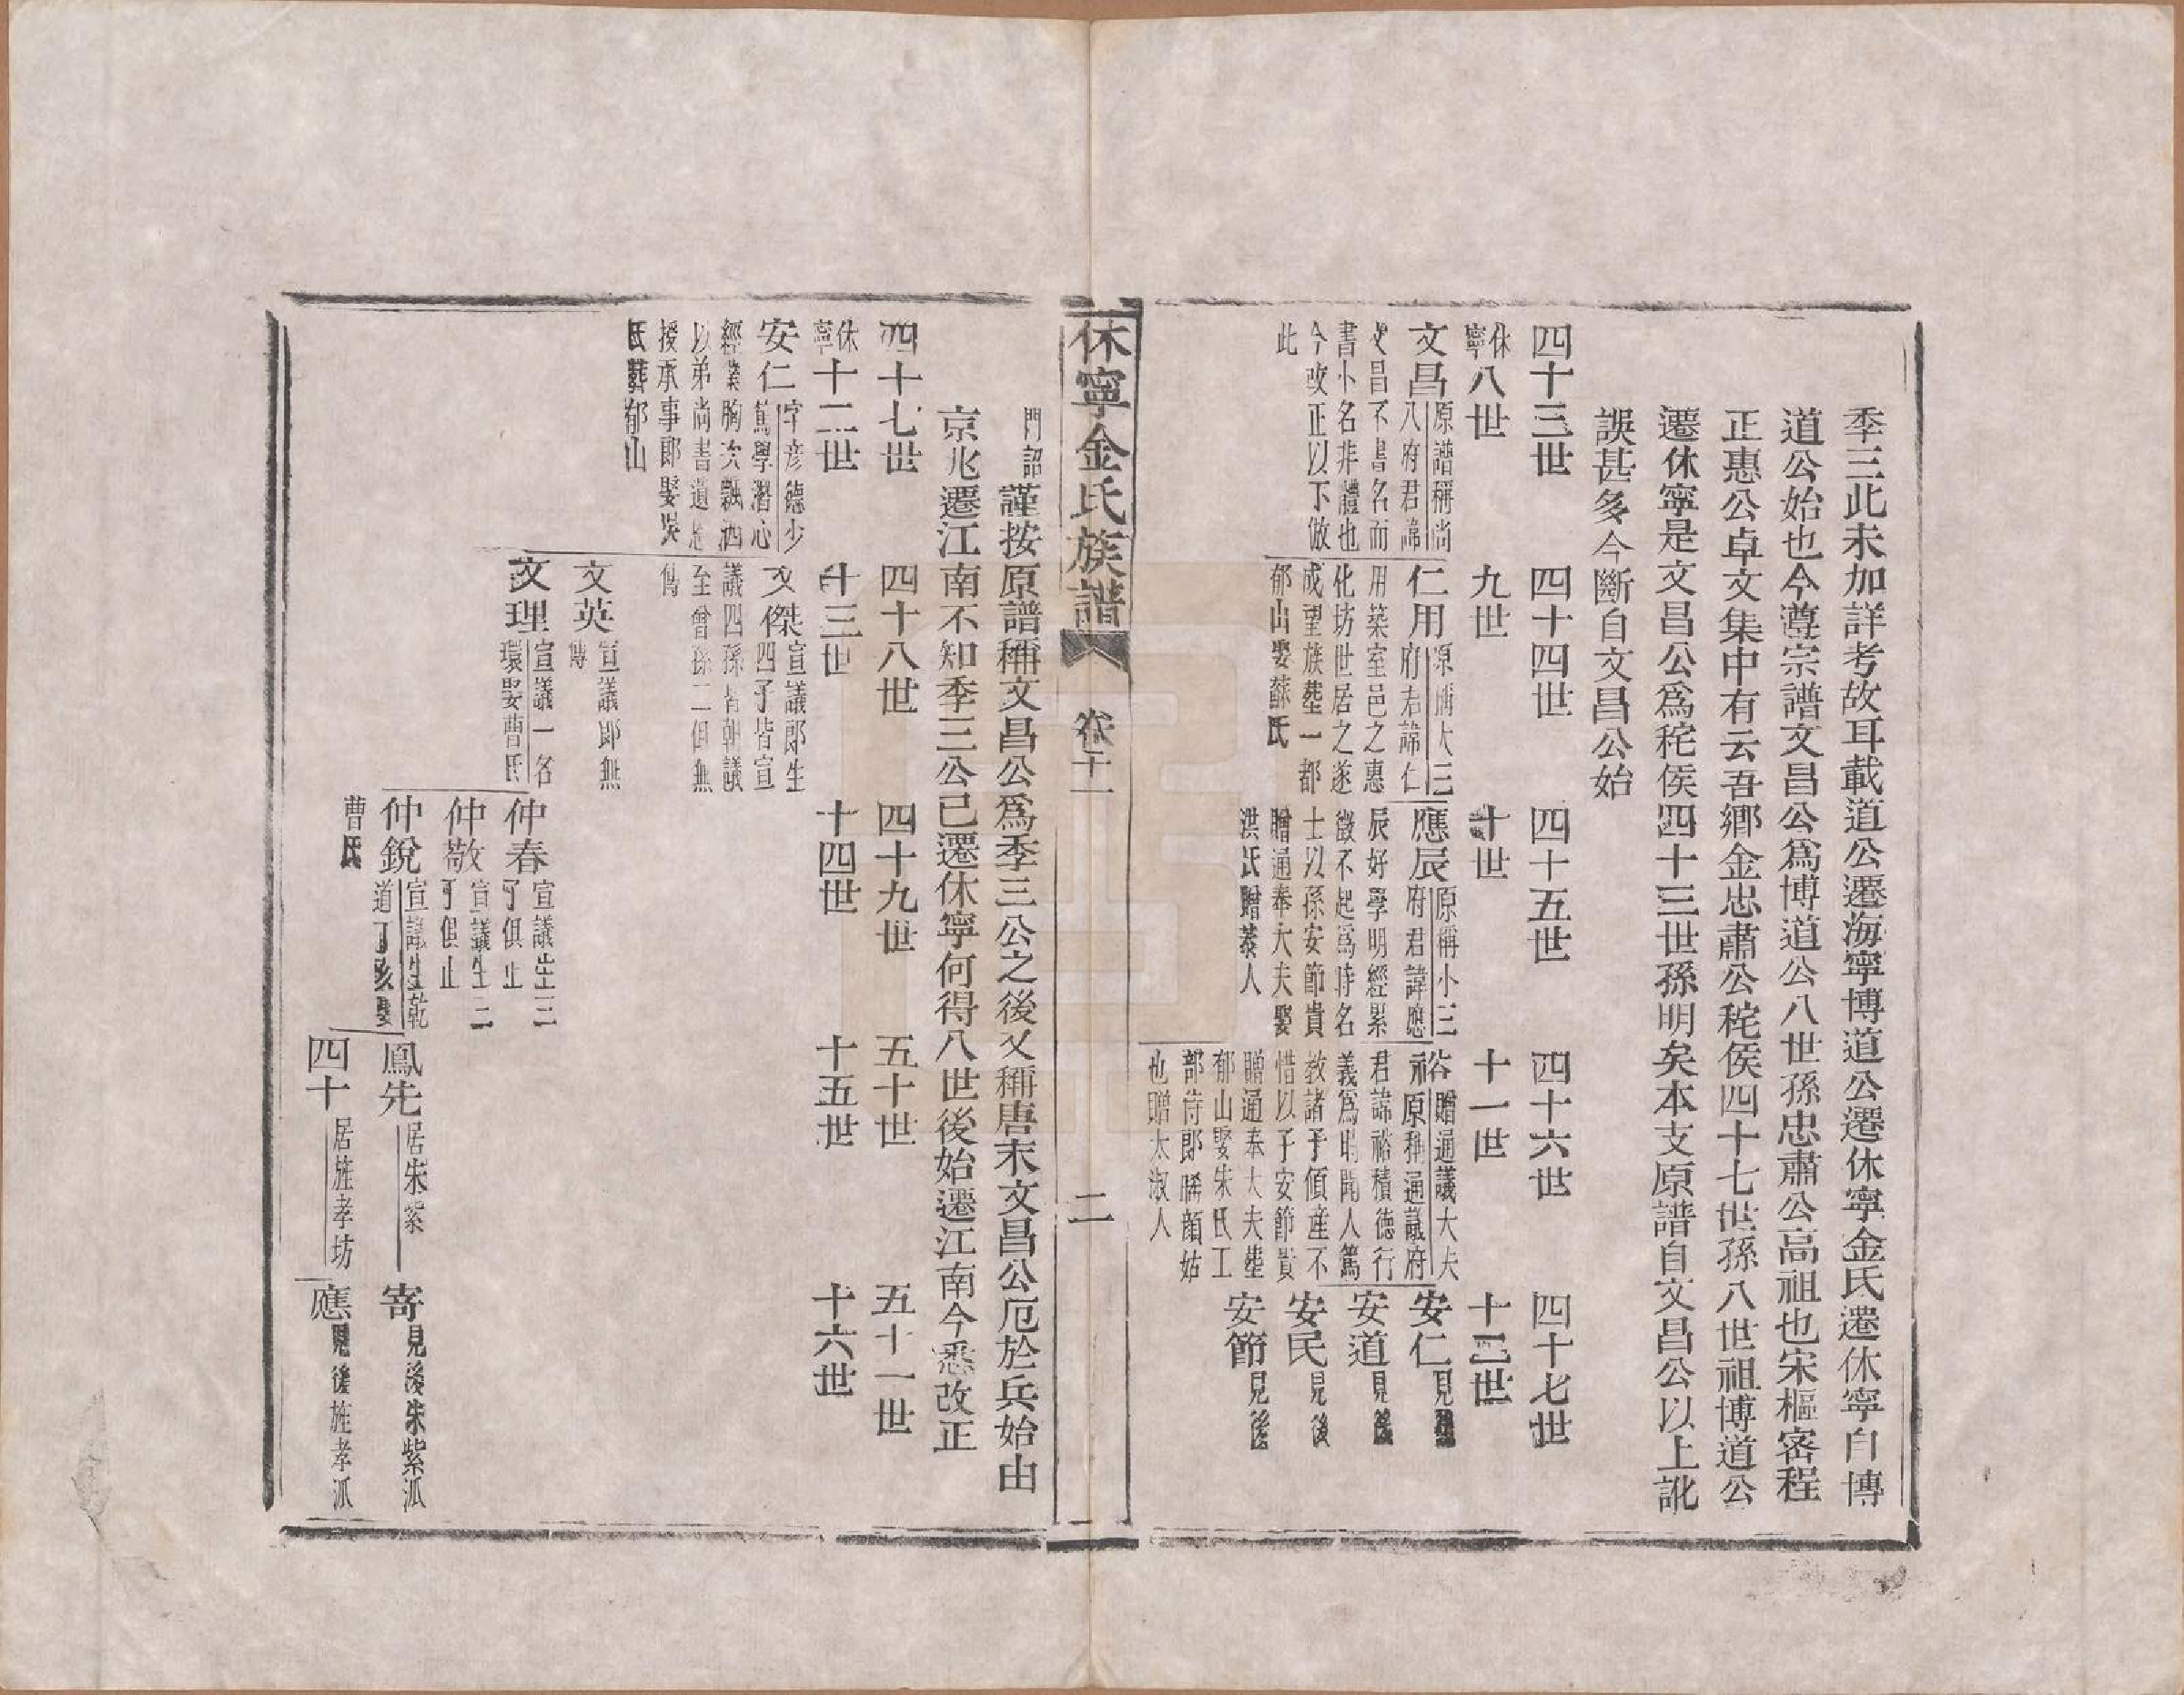 季三此未加詳考故耳載道公遷海寧博道公遷休寧金氏遷休寧自博
道公始也今遵宗譜文昌公爲博道公八世孫忠肅公高祖也宋樞密程
正惠公卓文集中有云吾鄉金忠肅公秺侯四十七世孫八世祖博道公
遷休寧是文昌公爲秺侯四十三世孫明矣本支原譜自文昌公以上訛
誤甚多今斷自文昌公始
四十三世
四十四世
四十五世
四十六世
四十七世
休寧八世
九世
十世
十一世
十二世
文昌
原譜稱尚
八府君諱
文昌不書名而
書小名非禮也
今改正以下倣
此
仁用
原稱大三
府君諱仁
用築室邑之惠
化坊世居之遂
成望族塟一都
郁山娶蘇氏
應辰
原稱小三
府君諱應
辰好學明經累
徵不起爲時名
士以孫安節貴
贈通奉大夫娶
洪氏贈恭人
裕
贈通議大夫
原稱通議府
君諱裕積德行
義爲時聞人篤
教諸子傾産不
惜以子安節貴
贈通奉大夫塟
郁山娶朱氏工
部侍郎晞顔姑
也贈太淑人
安仁見後
安道見後
安民見後
安節見後
休寧金氏族譜
卷十一
二
門詔
謹按原譜稱文昌公爲季三公之後又稱唐末文昌公厄於兵始由
京兆遷江南不知季三公已遷休寧何得八世後始遷江南今悉改正
四十七世
四十八世
四十九世
五十世
五十一世
休寧十二世
十三世
十四世
十五世
十六世
安仁
字彦德少
篤學潛心
經業胸次飄洒
以弟尚書遺恩
授承事郎娶吳
氏葬郁山
文傑
宣議郎生
四子皆宣
議四孫皆朝議
至曾孫二俱無
傳
文英
宣議郎無
傳
文理
宣議一名
環娶曹氏
仲春
宣議生三
子俱止
仲敬
宣議生二
子俱止
仲銳
宣議生乾
道丁亥娶
曹氏
鳳先
居朱紫
四十
居旌孝坊
寄
見後朱紫派
應
見後旌孝派